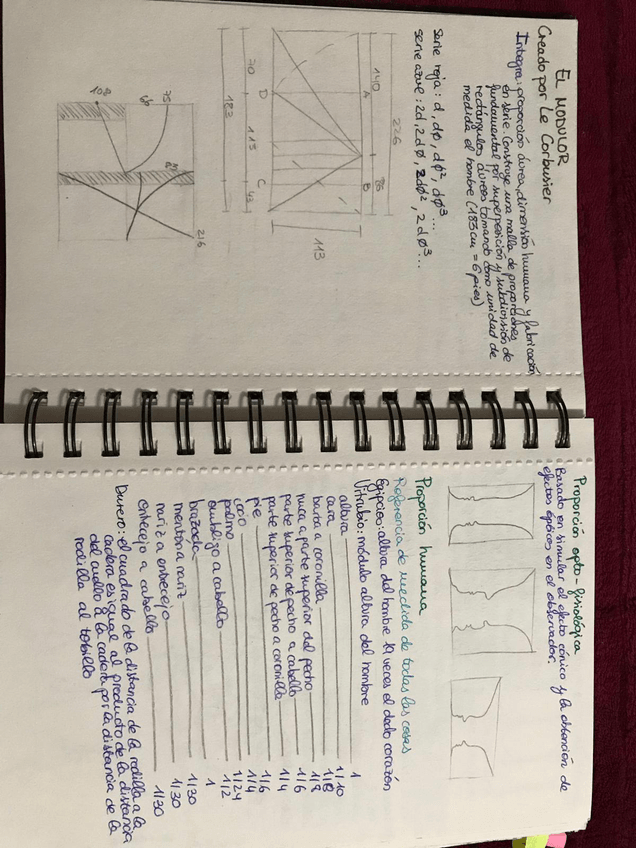 EL MODULOR
Creado por Le Corbusier
Integra: proporción áurea, dimensión humana y fabricación
en serie. Construye una malla de proporciones
fundamental por superposición y subdivisión de
rectángulos áureos tomando como unidad de
medida el hombre (183cm = 6 pies)
Serie roja: d, dø, dø², dø³...
serie azul: 2d, 2dø, 2dø², 2dø³...
226
140
86
A
B
D
C
70
113
43
183
113
108
75
216
Proporción opto-fisiológica
Basado en simular el efecto cónico y la obtención de
efectos ópticos en el observador.
Proporción humana
Referencia de medida de todas las cosas
Egipcios: altura del hombre 19 veces el dedo corazón
Vitrubio: módulo altura del hombre
altura 1
cara 1/10
barba a coronilla 1/8
nuca a parte superior del pecho 1/6
parte superior de pecho a cabello 1/6
parte superior de pecho a coronilla 1/4
pie 1/6
codo 1/4
palmo 1/24
ombligo a cabello 1/2
brazada 1
mentón a nariz 1/30
nariz a entrecejo 1/30
entrecejo a cabello 1/30
Durero: el cuadrado de la distancia de la rodilla a la
cadera es igual al producto de la distancia
del cuello a la cadera por la distancia de la
rodilla al tobillo